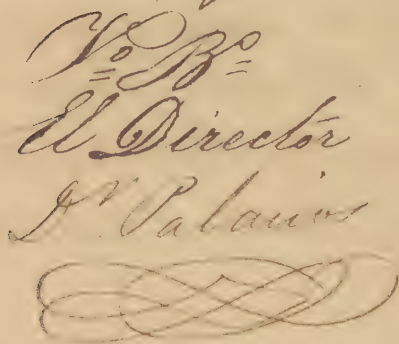 Vº Bº
El Director
Dr Palacios